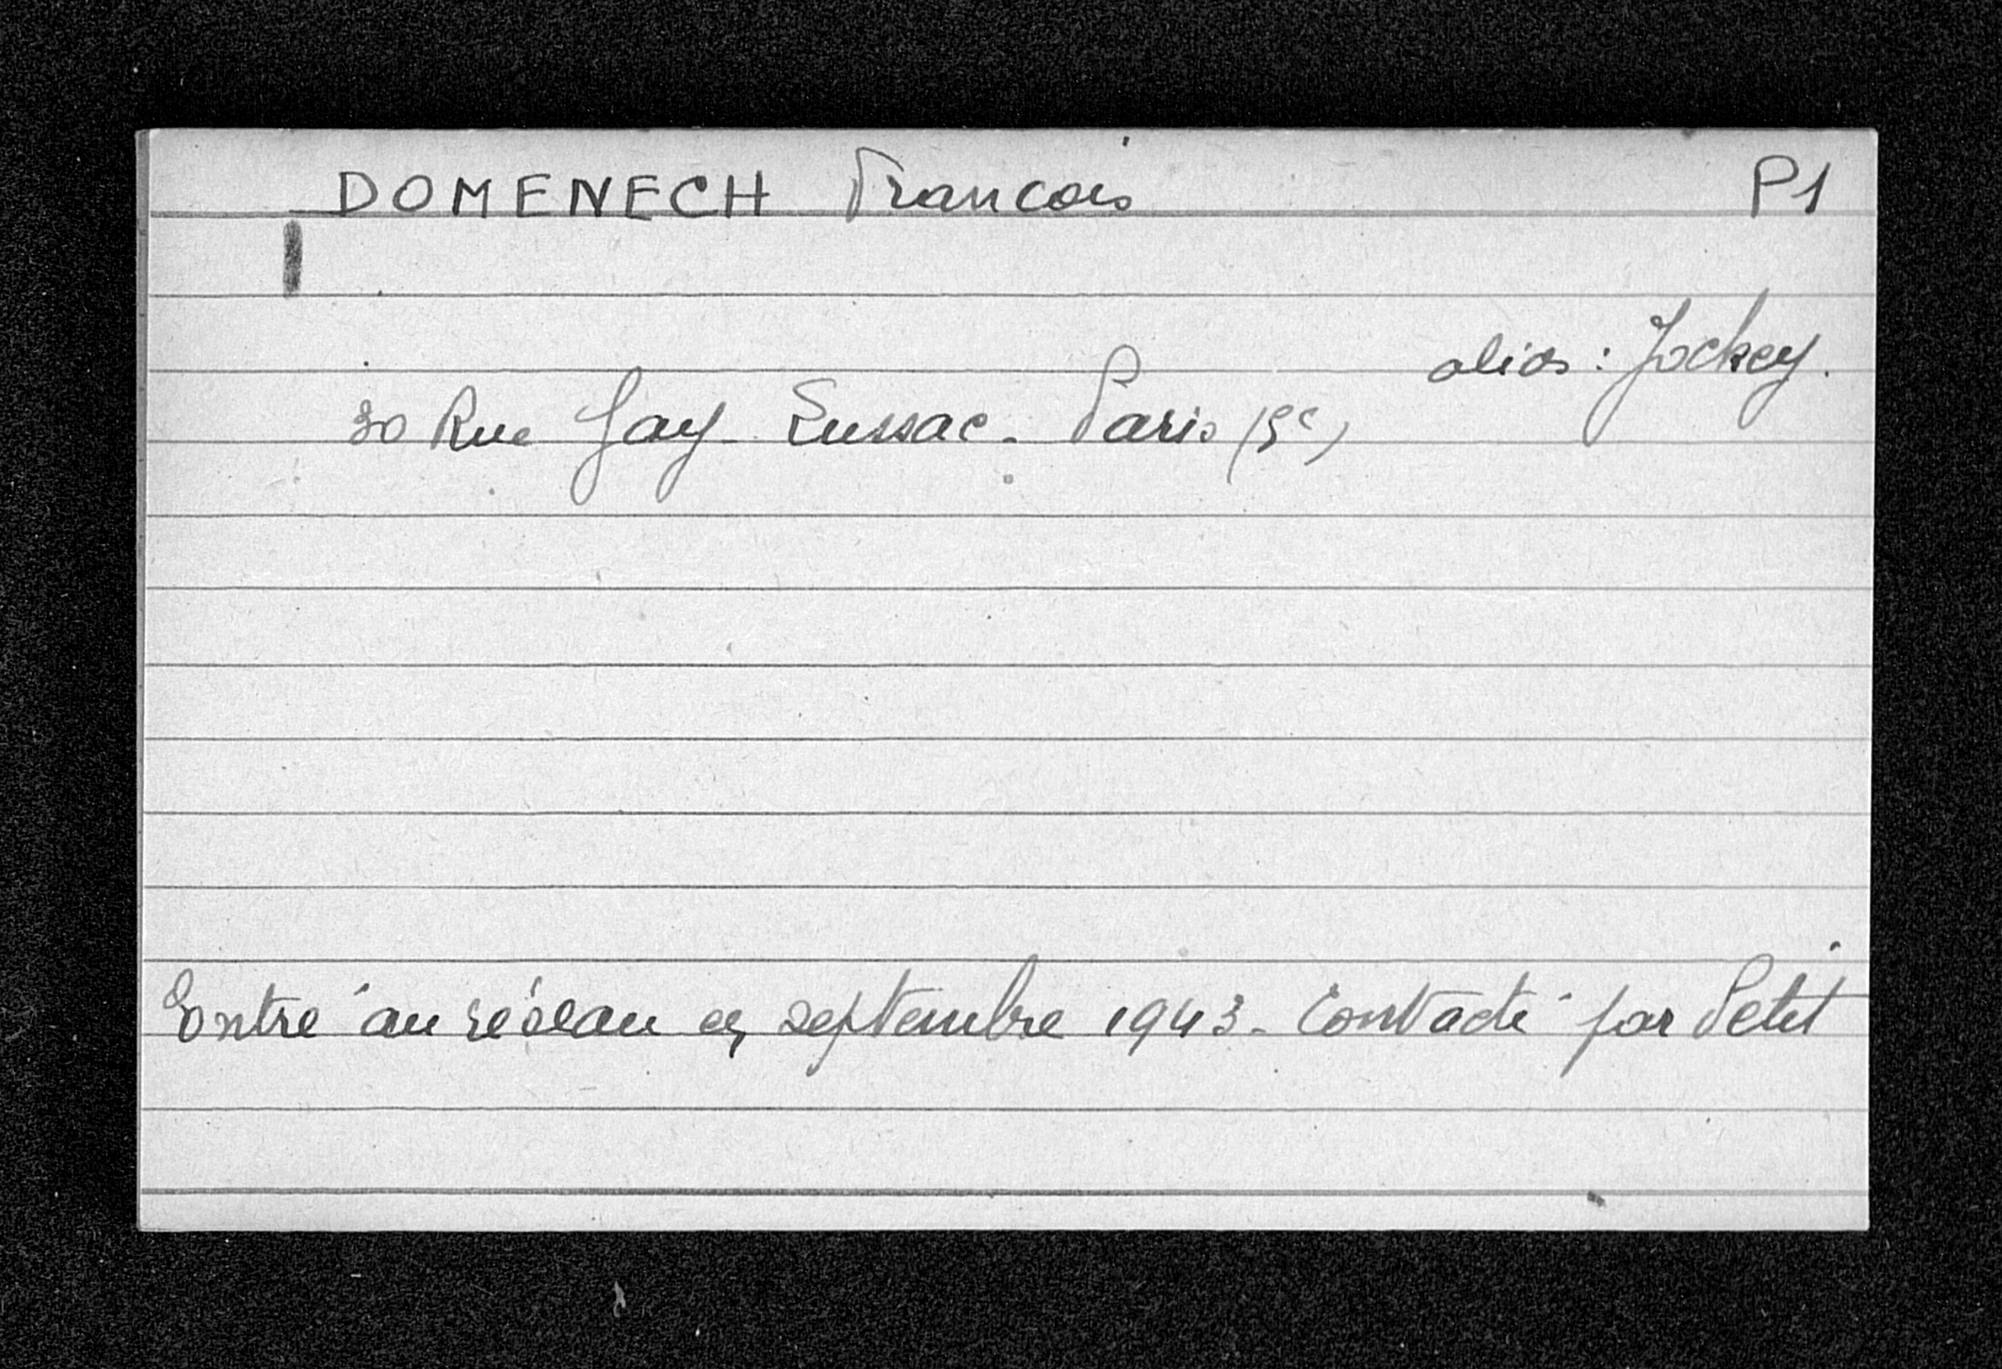 DOMENECH Francois P1
alias : Jockey.
30 Rue Gay Lussac - Paris (5e)
Entré au réseau en septembre 1943 - Contacté par Petit